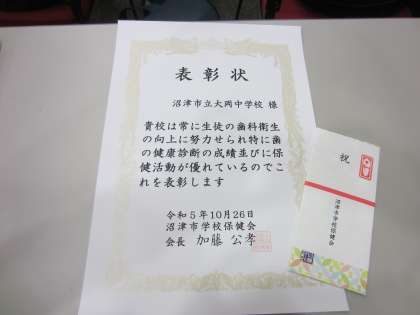 表彰状
沼津市立大岡中学校 様
貴校は常に生徒の歯科衛生
の向上に努力せられ特に歯
の健康診断の成績並びに保
健活動が優れているのでこ
れを表彰します
令和5年10月26日
沼津市学校保健会
会長 加藤 公孝
祝
沼津市学校保健会